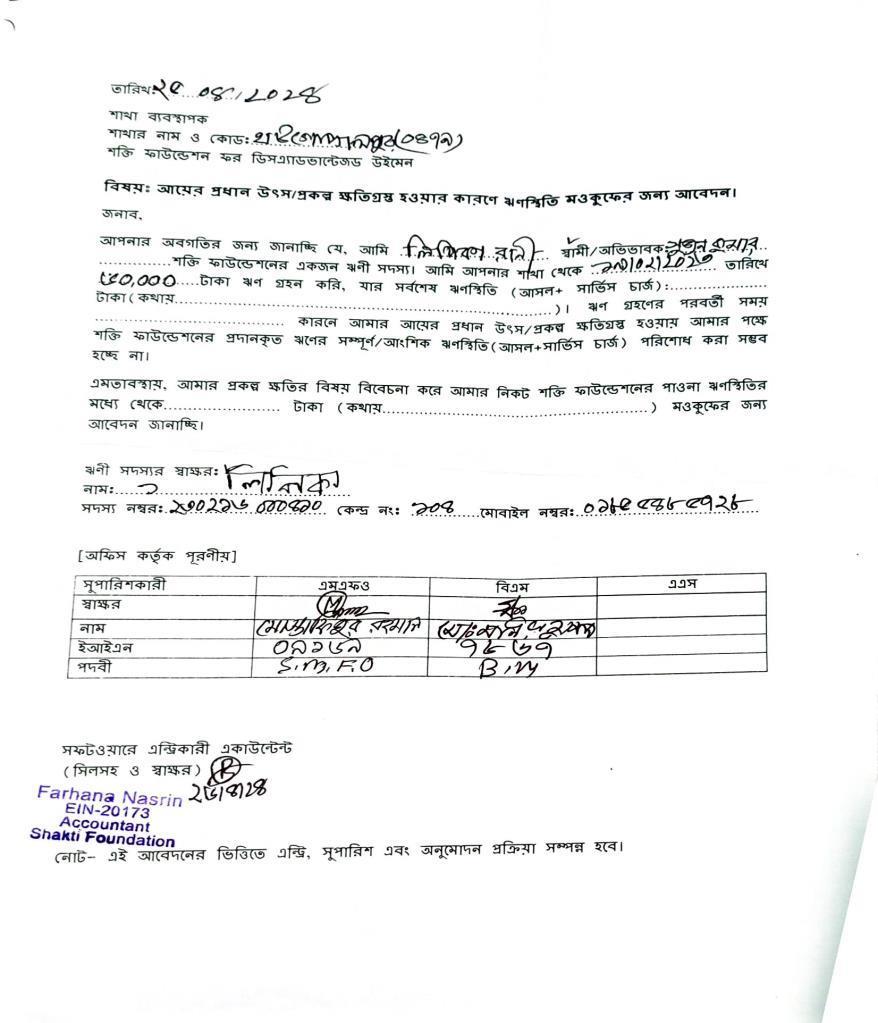 তারিখ: ২৫.০৪.২০২৪
শাখা ব্যবস্থাপক
শাখার নাম ও কোড: (০৪৭৯)
শক্তি ফাউন্ডেশন ফর ডিসএ্যাডভান্টেজড উইমেন
বিষয়: আয়ের প্রধান উৎস/প্রকল্প ক্ষতিগ্রস্থ হওয়ার কারণে ঋণস্থিতি মওকুফের জন্য আবেদন।
জনাব,
আপনার অবগতির জন্য জানাচ্ছি যে, আমি লিপিকা রানী স্বামী/অভিভাবক: কুমার
..............শক্তি ফাউন্ডেশনের একজন ঋনী সদস্য। আমি আপনার শাখা থেকে ............ তারিখে
৫০,০০০.....টাকা ঋণ গ্রহন করি, যার সর্বশেষ ঋণস্থিতি (আসল+ সার্ভিস চার্জ):..............
টাকা(কথায়..............................................................)। ঋণ গ্রহণের পরবর্তী সময়
................................ কারনে আমার আয়ের প্রধান উৎস/প্রকল্প ক্ষতিগ্রস্থ হওয়ায় আমার পক্ষে
শক্তি ফাউন্ডেশনের প্রদানকৃত ঋণের সম্পূর্ণ/আংশিক ঋণস্থিতি(আসল+সার্ভিস চার্জ) পরিশোধ করা সম্ভব
হচ্ছে না।
এমতাবস্থায়, আমার প্রকল্প ক্ষতির বিষয় বিবেচনা করে আমার নিকট শক্তি ফাউন্ডেশনের পাওনা ঋণস্থিতির
মধ্যে থেকে.................... টাকা (কথায়............................................) মওকুফের জন্য
আবেদন জানাচ্ছি।
ঋনী সদস্যর স্বাক্ষর: লিপিকা
নাম:
সদস্য নম্বর: কেন্দ্র নং: ১০৪ মোবাইল নম্বর:
[অফিস কর্তৃক পূরণীয়]
সুপারিশকারী এমএফও বিএম এএস
স্বাক্ষর
নাম মোস্তাফিজুর রহমান
ইআইএন
পদবী S.M.F.O B.M
সফটওয়ারে এন্ট্রিকারী একাউন্টেন্ট
(সিলসহ ও স্বাক্ষর)
Farhana Nasrin
EIN-20173
Accountant
Shakti Foundation
নোট- এই আবেদনের ভিত্তিতে এন্ট্রি, সুপারিশ এবং অনুমোদন প্রক্রিয়া সম্পন্ন হবে।